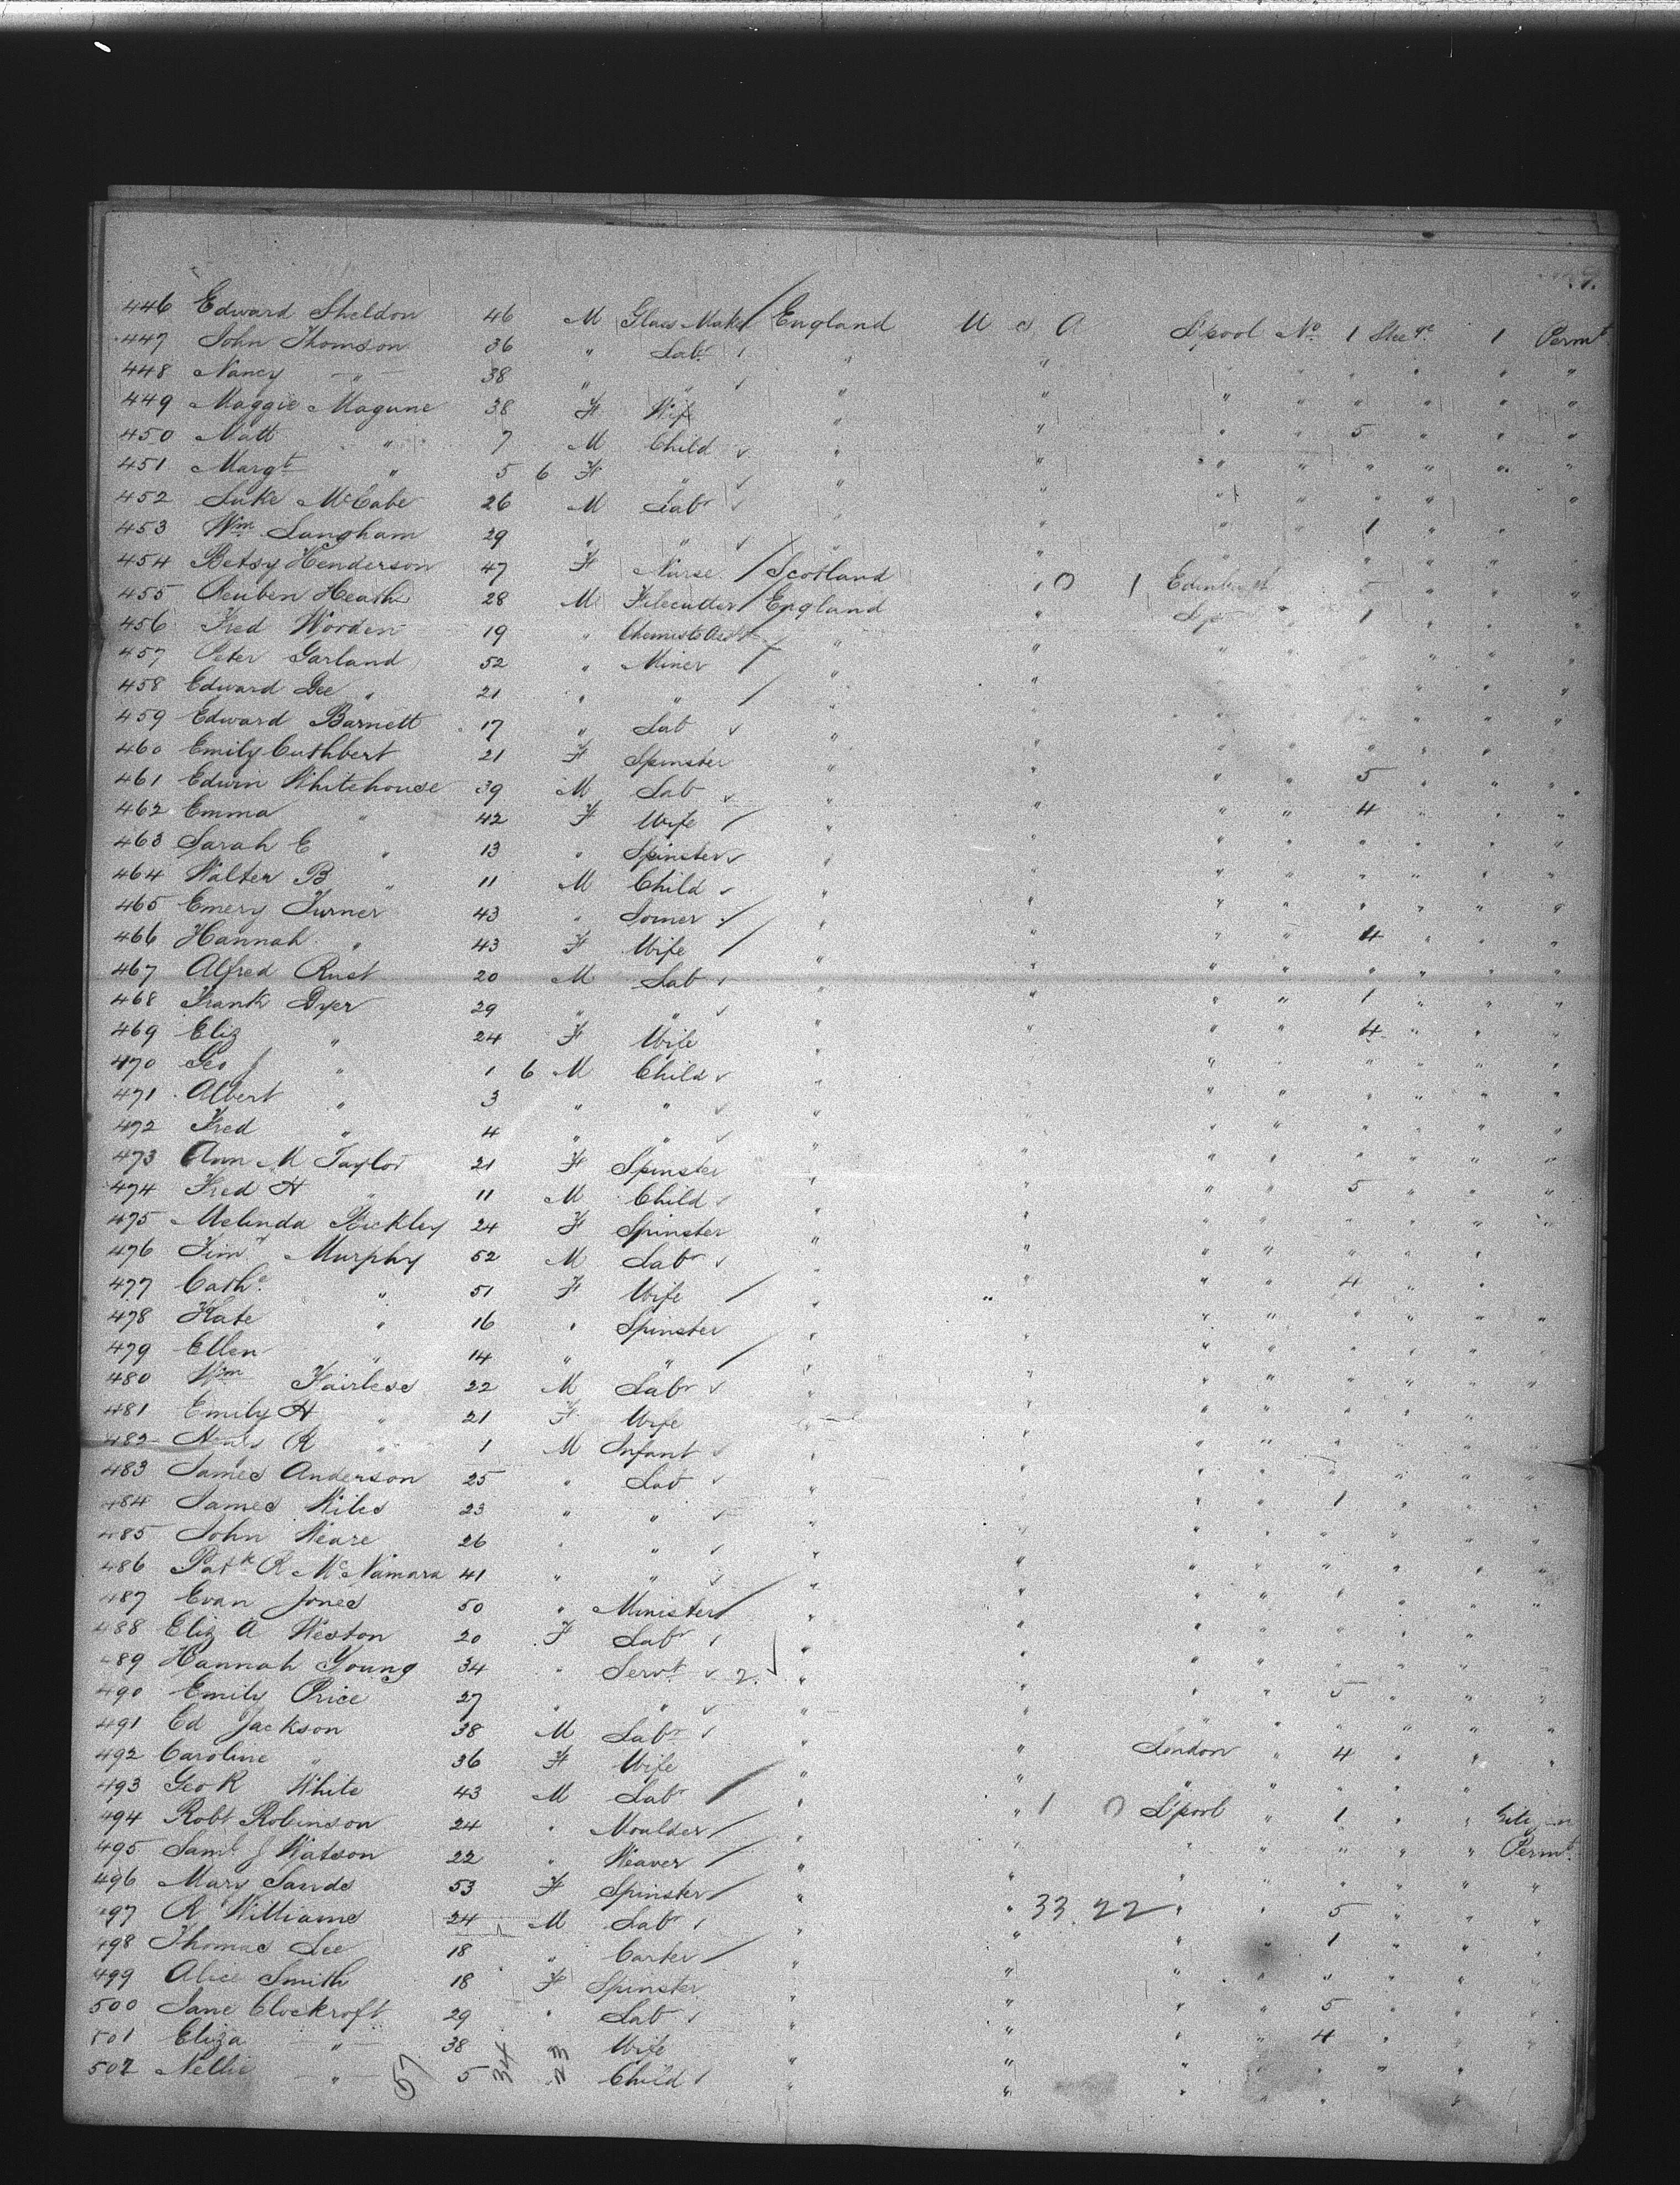 446 Edward Sheldon 46 M Glass Maker / England U S A L'pool No 1 Stee'ge 1 Permt
447 John Thomson 36 " Labr " " " " " " " "
448 Nancy " 38 " " " " " " " " " "
449 Maggie Magune 38 F Wife " " " " 5 " " "
450 Matt " 7 M Child " " " " " " " "
451 Margt " 5 6 F " " " " " " " " "
452 Luke McCabe 26 M Labr " " " " 1 " "
453 Wm Langham 29 " " " " " " " " " "
454 Betsy Henderson 47 F Nurse / Scotland " 10 1 Edinburgh 5 " " "
455 Reuben Heath 28 M Filecutter / England " " 1 " " "
456 Fred Worden 19 " Chemists / " " " " " " " "
457 Peter Garland 52 " Miner / " " " " " " " "
458 Edward Dee " 21 " " / " " " " " " " "
459 Edward Barnett 17 " Lab " " " " " " " "
460 Emily Cuthbert 21 F Spinster " " " " 5 " " "
461 Edwin Whitehouse 39 M Lab " " " " 4 " " "
462 Emma " 42 F Wife / " " " " " " " "
463 Sarah E " 13 " Spinster " " " " " " " "
464 Walter B " 11 M Child " " " " " " " "
465 Emery Turner 43 " Joiner / " " " " 4 " " "
466 Hannah " 43 F Wife / " " " " " " " "
467 Alfred Rust 20 M Lab " " " " 1 " " "
468 Frank Dyer 29 " " " " " " 4 " " "
469 Eliz " 24 F Wife " " " " " " " "
470 Geo J " 1 6 M Child " " " " " " " "
471 Albert " 3 " " " " " " " " " "
472 Fred " 4 " " " " " " " " " "
473 Ann M Taylor 21 F Spinster " " " " 5 " " "
474 Fred H " 11 M Child " " " " " " " "
475 Melinda 24 F Spinster " " " " " " " "
476 Timy Murphy 52 M Labr " " " " 4 " " "
477 Cathe " 51 F Wife / " " " " " " " "
478 Kate " 16 " Spinster " " " " " " " "
479 Ellen " 14 " " / " " " " " " " "
480 Wm Fairless 22 M Labr " " " " " " " "
481 Emily H " 21 F Wife " " " " " " " "
482 R " 1 M Infant " " " " " " " "
483 James Anderson 25 " Lab " " " " 1 " " "
484 James Wiles 23 " " " " " " " " " "
485 John Weare 26 " " " " " " " " " "
486 Patk R McNamara 41 " " " " " " " " " "
487 Evan Jones 50 " Minister / " " " " " " " "
488 Eliz A Weston 20 F Labr " " " " " " " "
489 Hannah Young 34 " Servt 2 " " " " 5 " " "
490 Emily Price 27 " " " " " " " " " "
491 Ed Jackson 38 M Labr " " London " 4 " " "
492 Caroline " 36 F Wife " " " " " " " "
493 Geo R White 43 M Labr / " " 1 0 L'pool " 1 " "
494 Robt Robinson 24 " Moulder / " " " " " " " Permt
495 Saml J Watson 22 " Weaver / " " " " " " " "
496 Mary Sands 53 F Spinster / " " 33 22 " " 5 " " "
497 R Williams 24 M Labr " " " " 1 " " "
498 Thomas Lee 18 " Carter / " " " " " " " "
499 Alice Smith 18 F Spinster " " " " 5 " " "
500 Jane Clockroft 29 " Lab " " " " 4 " " "
501 Eliza " 38 " Wife " " " " " " " "
502 Nellie " 5 " Child " " " " " " " "
57 34 23